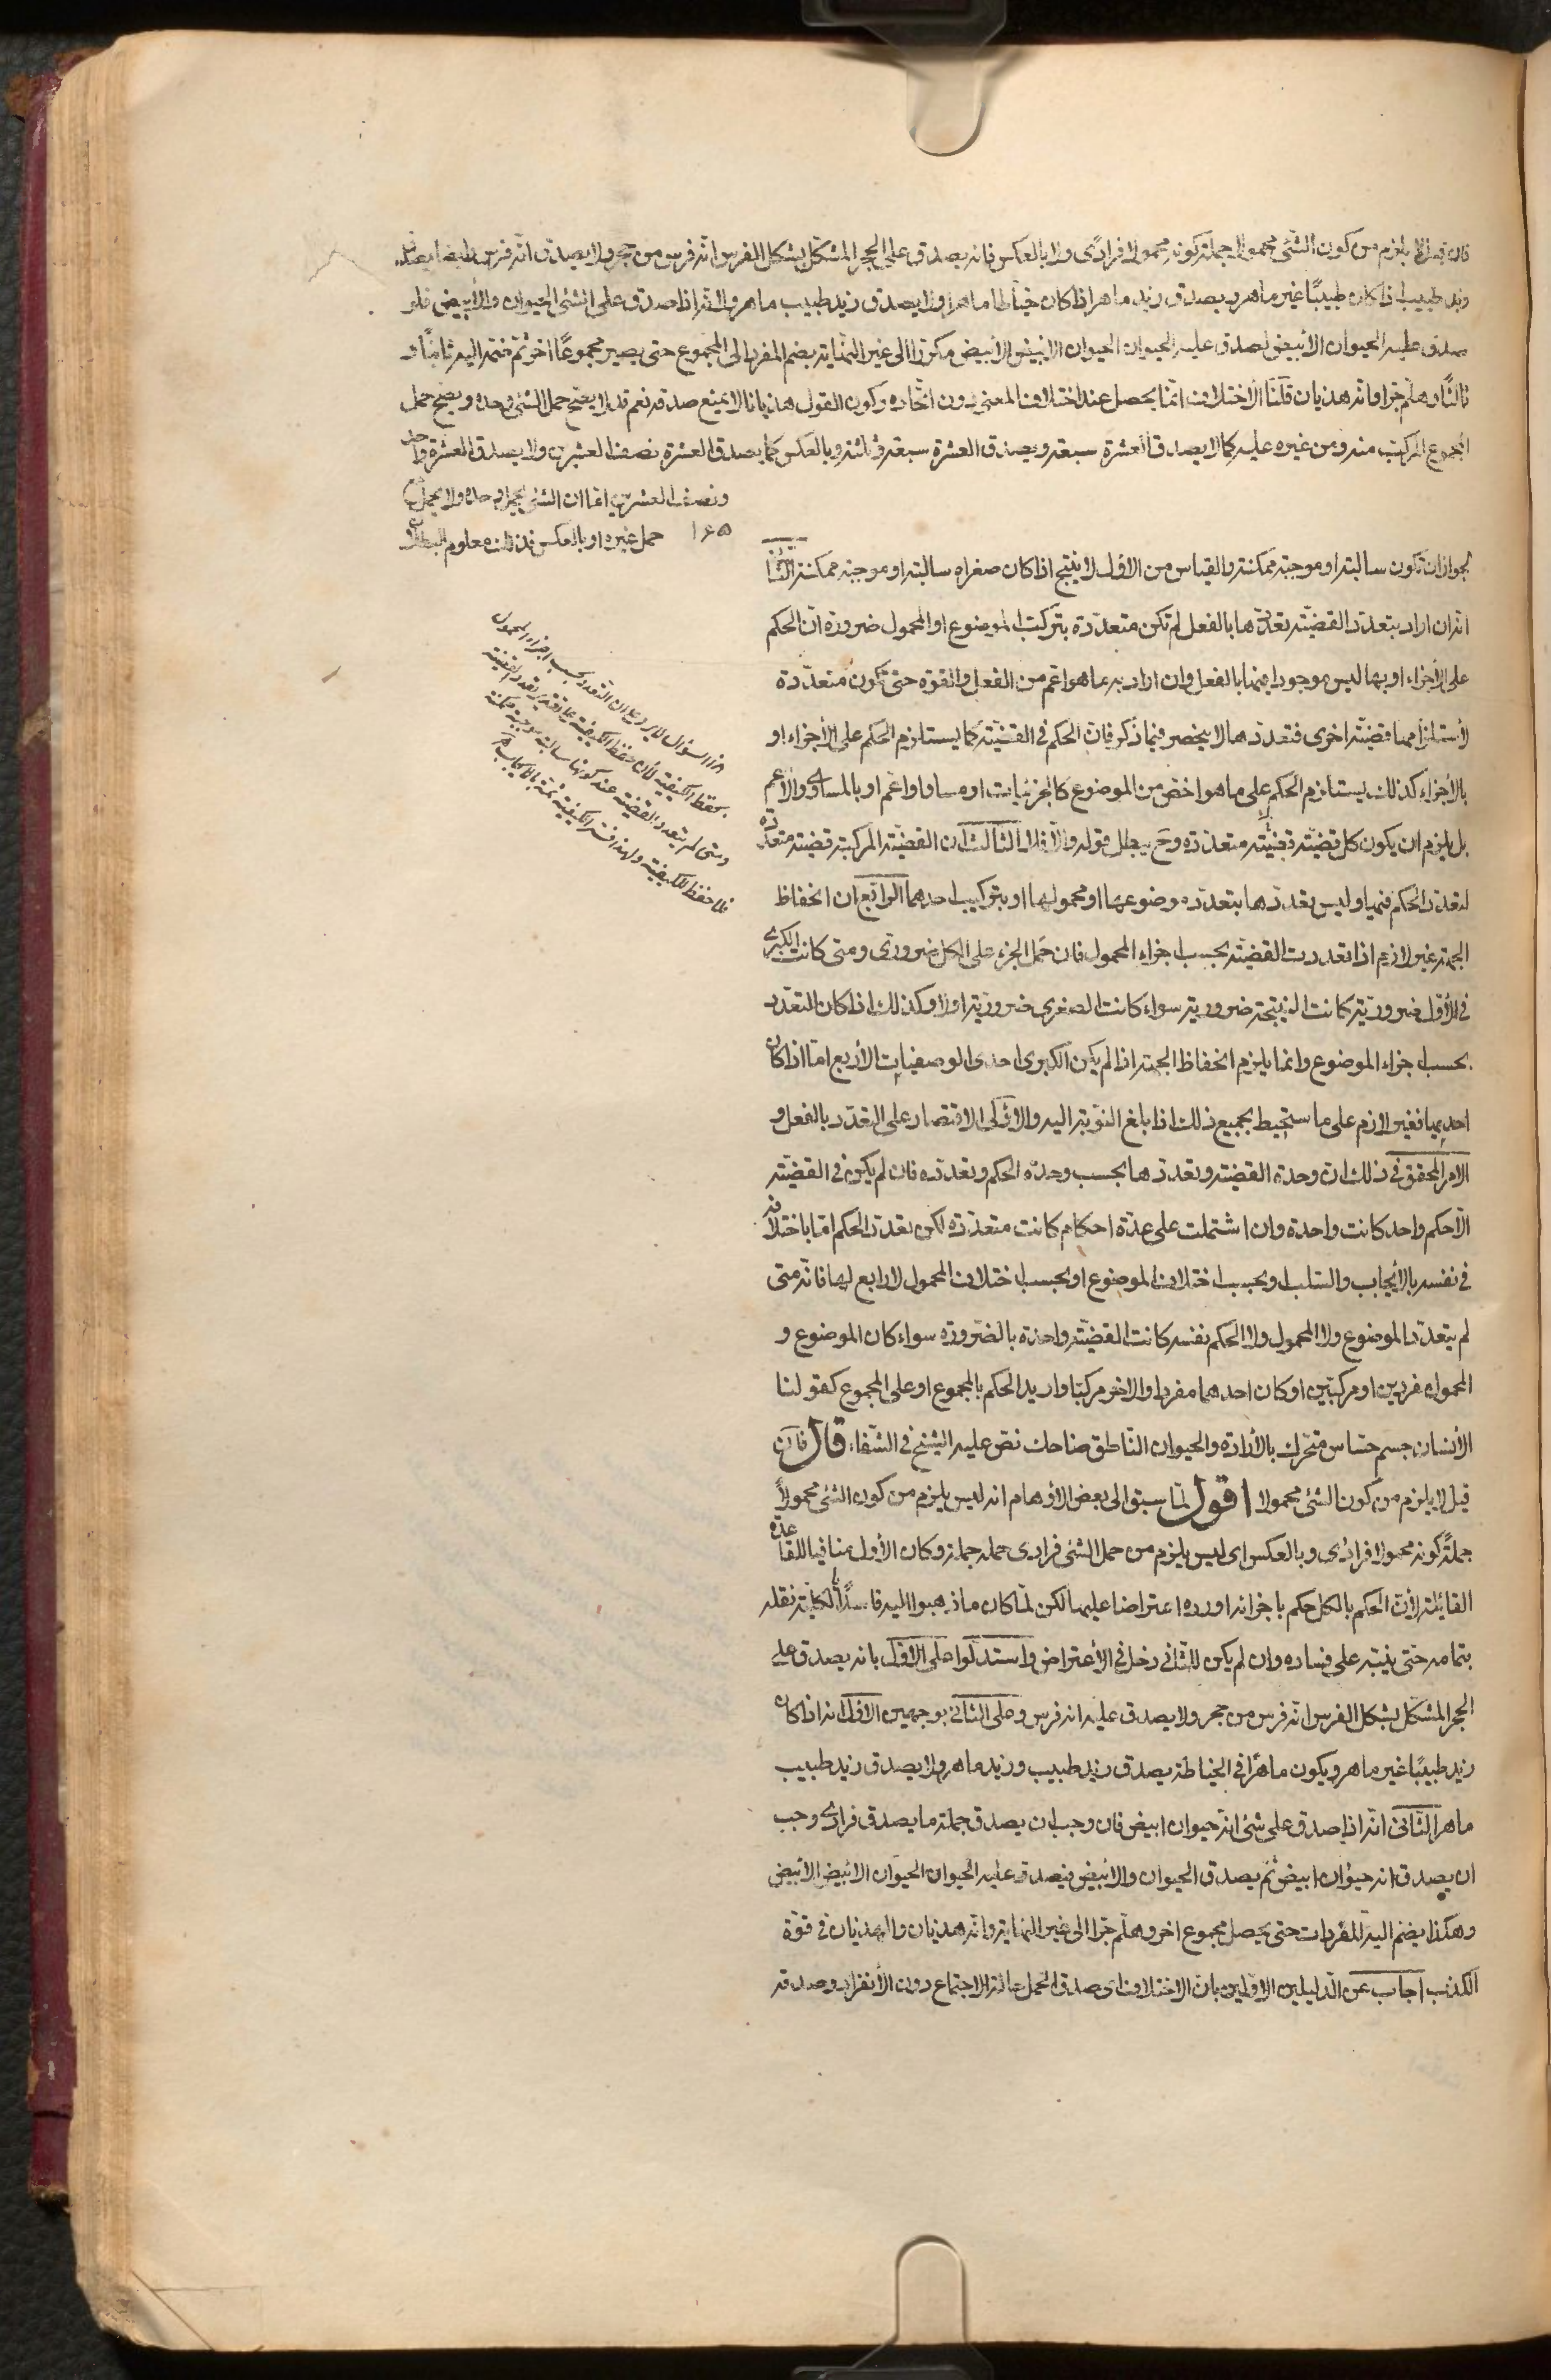 فان قيل لا يلزم من كون الشئ محمولا جملة كونه محمولا فرادى ولا بالعكس فانه يصدق على الحجر المشكل بشكل الفرس انه فرس من حجر ولا يصدق انه فرس وايضا يصدق
زيد طبيب اذا كان طبيبًا غير ماهر ويصدق زيد ماهر اذا كان خياطا ماهرا ولا يصدق زيد طبيب ماهر ولانه اذا صدق على الشئ الحيوان والأبيض فلو
صدق عليه الحيوان الأبيض لصدق عليه الحيوان الحيوان الابيض الابيض مكررا الى غير النهاية بضم المفرد الى المجموع حتى يصير مجموعًا اخر ثم ضمه اليه ثانيًا و
ثالثًا وهلم جرا وانه هذيان قلنا الاختلاف انما يحصل عند اختلاف المعنى دون اتحاده وكون القول هذيانا لا يمنع صدقه نعم قد لا يصح حمل الشئ وحده ويصح حمل
المجموع المركب منه ومن غيره عليه كما لا يصدق العشرة سبعة ويصدق العشرة سبعة وثلثة وبالعكس كما يصدق العشرة نصف العشرين ولا يصدق العشرة واحد
ونصف العشرين اما ان الشئ يحمل وحده ولا يحمل
حمل غيره او بالعكس فذلك معلوم البطلان
١٦٥
لجواز ان تكون سالبة او موجبة ممكنة والقياس من الاول لا ينتج اذا كان صغراه سالبة او موجبة ممكنة الثانى
انه ان اراد بتعدد القضية تعددها بالفعل لم تكن متعددة بتركب الموضوع او المحمول ضرورة ان الحكم
على الأجزاء او بها ليس موجودا فيها بالفعل وان اراد به ما هو اعم من الفعل والقوة حتى تكون متعددة
لأستلزامها قضية اخرى فتعددها لا ينحصر فيما ذكر فان الحكم فى القضية كما يستلزم الحكم على الأجزاء او
بالأجزاء كذلك يستلزم الحكم على ما هو اخص من الموضوع كالجزئيات او مساو او اعم او بالمساوى والأعم
بل يلزم ان يكون كل قضية قضية متعددة وح يبطل قوله والا فلا الثالث ان القضية المركبة قضية متعددة
لتعدد الحكم فيها وليس تعددها بتعدد موضوعها او محمولها او بتركيب احدهما الرابع ان انحفاظ
الجهة غير لازم اذا تعددت القضية بحسب اجزاء المحمول فان حمل الجزء على الكل ضرورى ومتى كانت الكبرى
فى الأول ضرورية كانت النتيجة ضرورية سواء كانت الصغرى ضرورية او لا وكذلك اذا كان التعدد
بحسب اجزاء الموضوع وانما يلزم انحفاظ الجهة اذا لم يكن الكبرى احدى الوصفيات الأربع اما اذا كان
احديها فغير لازم على ما ستحيط بجميع ذلك اذا بلغ النوبة اليه والاولى الاقتصار على التعدد بالفعل و
الامر المحقق فى ذلك ان وحدة القضية وتعددها بحسب وحدة الحكم وتعدده فان لم يكن فى القضية
الا حكم واحد كانت واحدة وان اشتملت على عدة احكام كانت متعددة لكن تعدد الحكم اما باختلافه
فى نفسه بالأيجاب والسلب وبحسب اختلاف الموضوع او بحسب اختلاف المحمول لا رابع لها فانه متى
لم يتعدد الموضوع ولا المحمول ولا الحكم نفسه كانت القضية واحدة بالضرورة سواء كان الموضوع و
المحمول مفردين او مركبين او كان احدهما مفردا والاخر مركبا واريد الحكم بالمجموع او على المجموع كقولنا
الأنسان جسم حساس متحرك بالأرادة والحيوان الناطق ضاحك نص عليه الشيخ فى الشفاء قال فان
قيل لا يلزم من كون الشئ محمولا اقول لما سبق الى بعض الأوهام انه ليس يلزم من كون الشئ محمولاً
جملةً كونه محمولا فرادى وبالعكس اى ليس يلزم من حمل الشئ فرادى حمله جملة وكان الأول منافيا للقاعدة
القائلة لأن الحكم بالكل حكم باجزائه اورده اعتراضا عليها لكن لما كان ما ذهبوا اليه فاسدًا بالكلية نقله
بتمامه حتى ينبه على فساده وان لم يكن للثانى دخل فى الأعتراض واستدلوا على الاول بانه يصدق على
الحجر المشكل بشكل الفرس انه فرس من حجر ولا يصدق عليه انه فرس وعلى الثانى بوجهين الاول انه اذا كان
زيد طبيبًا غير ماهر ويكون ماهرًا فى الخياطة يصدق زيد طبيب وزيد ماهر ولا يصدق زيد طبيب
ماهر الثانى انه اذا صدق على شئ انه حيوان ابيض فان وجب ان يصدق جملة ما يصدق فرادى وجب
ان يصدق انه حيوان ابيض ثم يصدق الحيوان والابيض فيصدق عليه الحيوان الحيوان الابيض الابيض
وهكذا يضم اليه المفردات حتى يحصل مجموع اخر وهلم جرا الى غير النهاية وانه هذيان والهذيان فى قوة
الكذب اجاب عن الدليلين الاولين بان الاختلاف اى صدق الحمل حالة الاجتماع دون الأنفراد وصدقه
هذا السؤال لا يرد على ان التعدد بحسب اجزاء المحمول
يحفظ الكيفية لأن حفظ الكيفية على تقدير تعدد القضية
ومتى لم يتعدد القضية عند كونها سالبة او موجبة ممكنة
فلا حفظ للكيفية ولهذا فسر الكيفية ثمة بالأيجاب